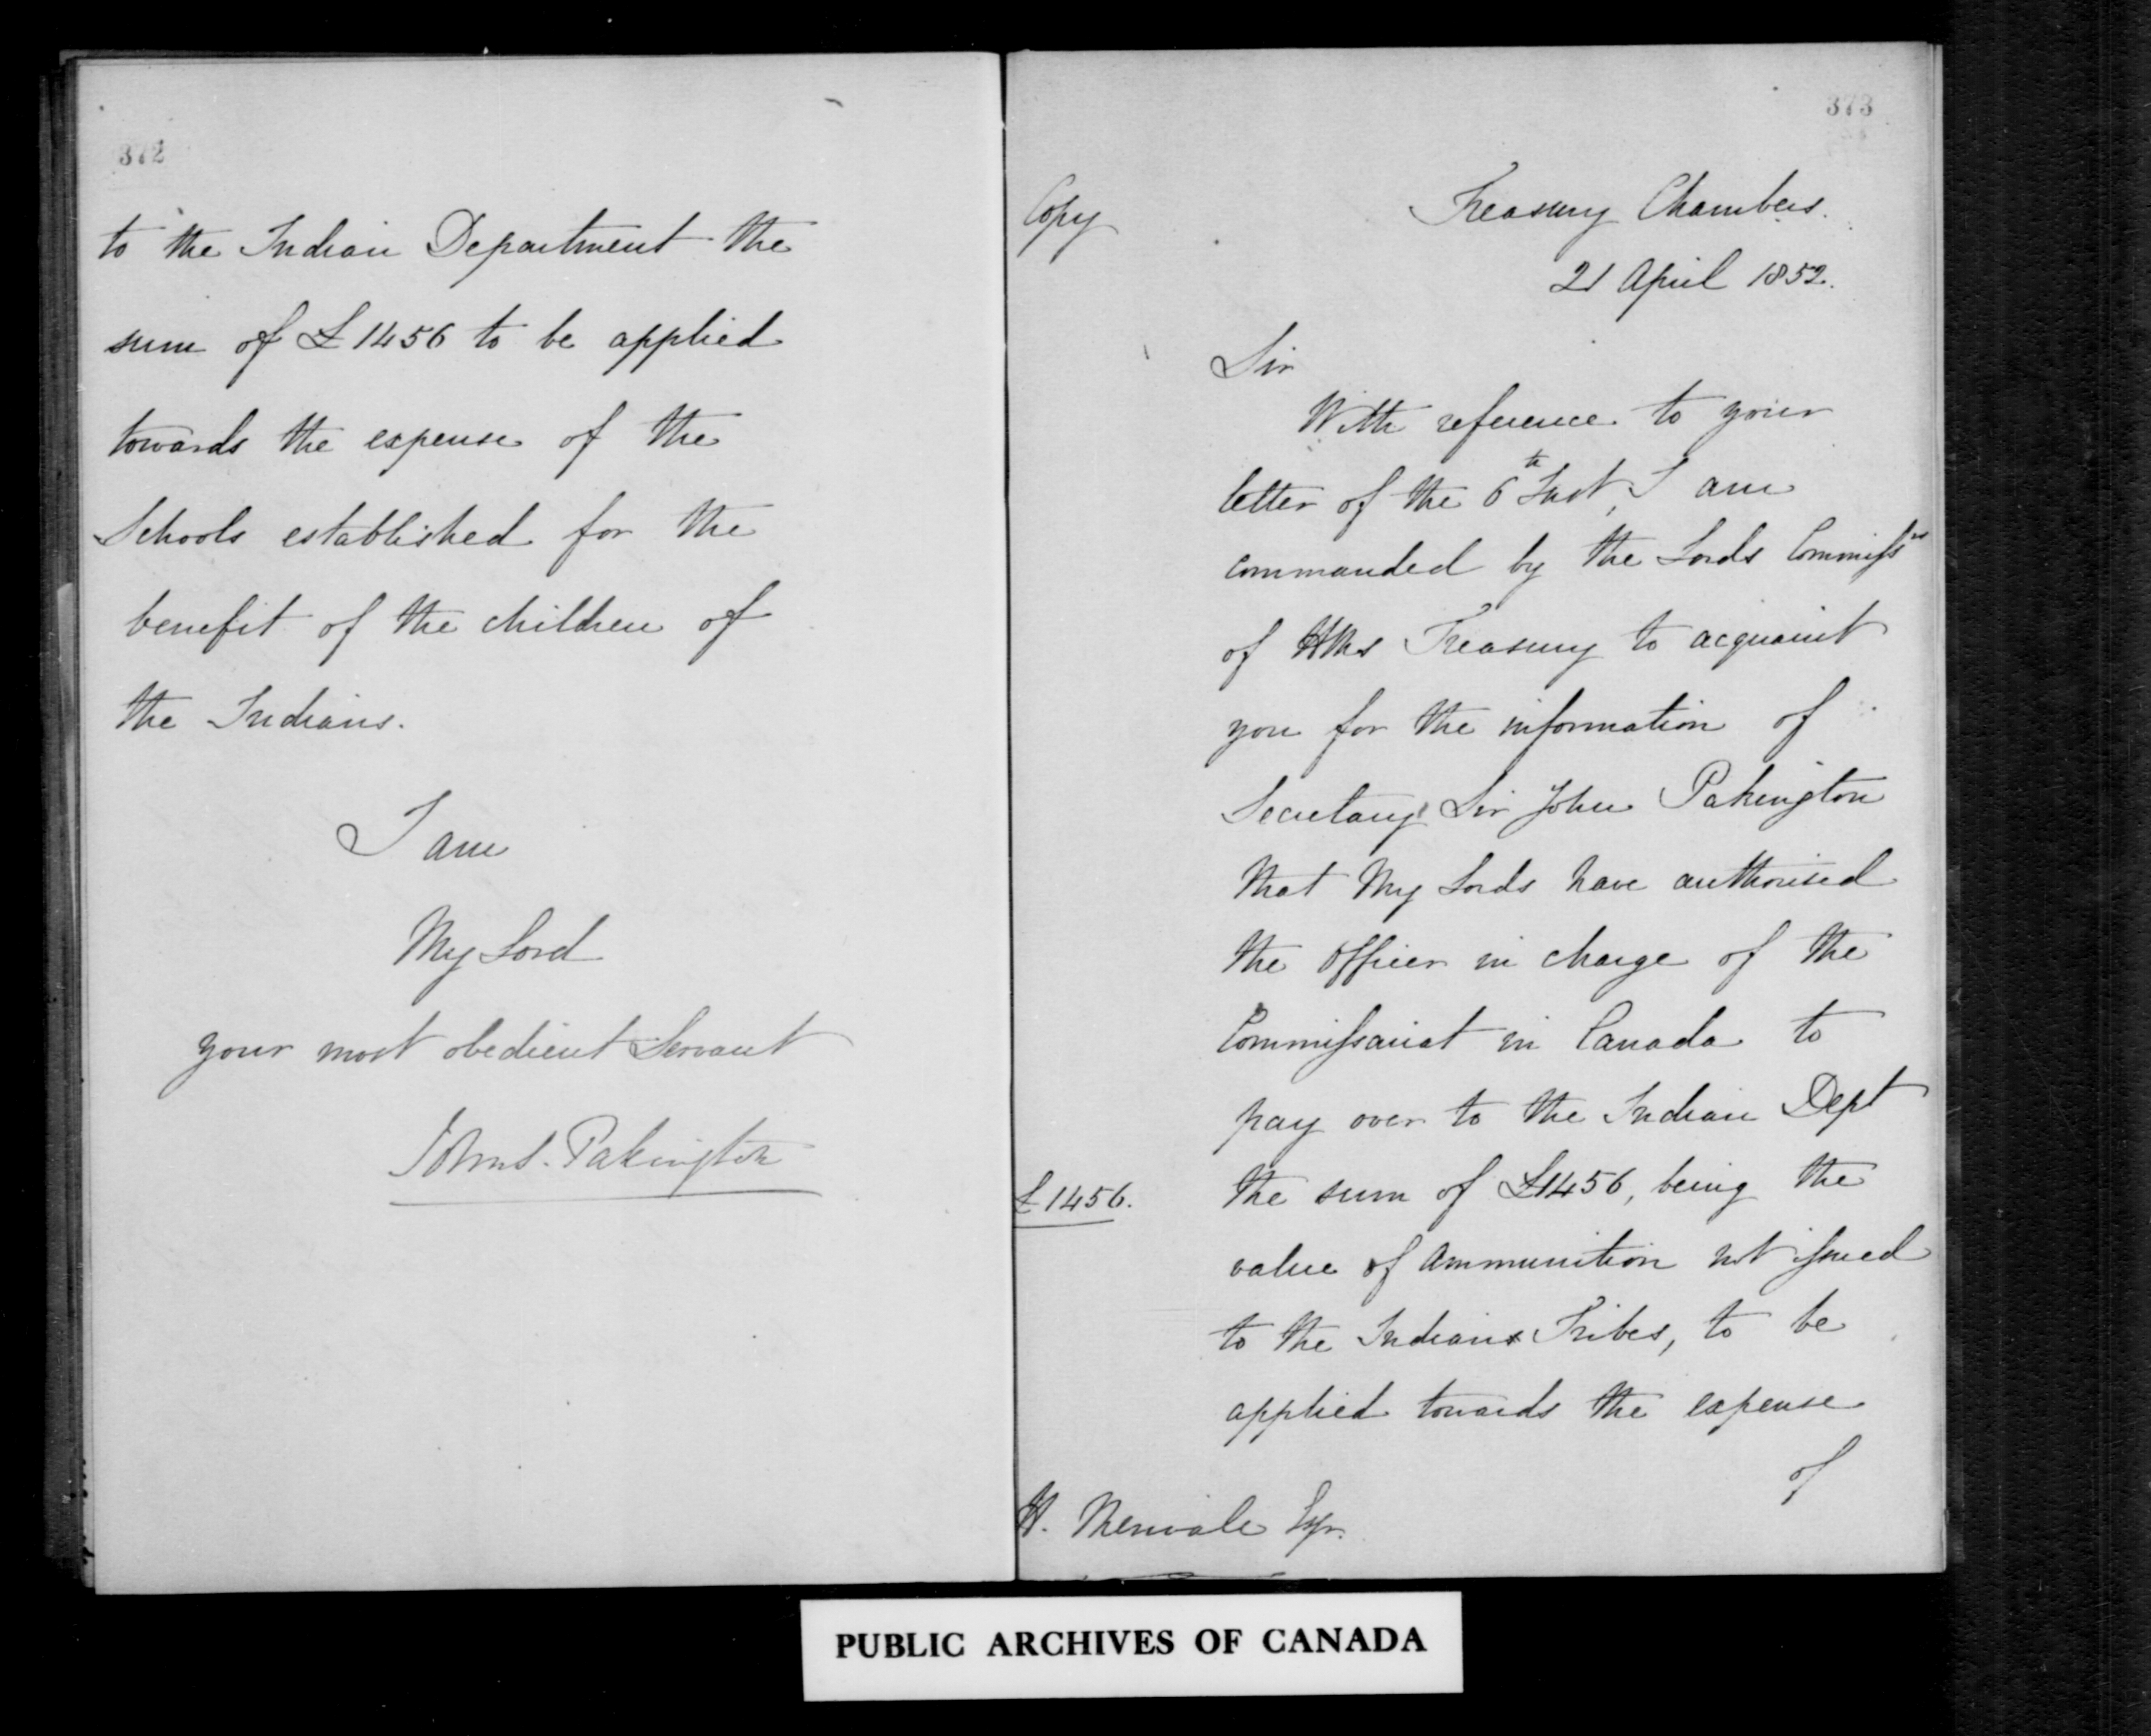 372
to the Indian Department the
sum of £1456 to be applied
towards the expense of the
Schools established for the
benefit of the children of
the Indians.
I am
My Lord
your most obedient Servant
John S. Pakington
373
Copy
Treasury Chambers.
21 April 1852.
Sir
With reference to your
letter of the 6th Inst, I am
commanded by the Lords Commissrs
of HMs Treasury to acquaint
you for the information of
Secretary Sir John Pakington
that My Lords have authorised
the Officer in charge of the
Commissariat in Canada to
pay over to the Indian Dept
£1456.
the sum of £1456, being the
value of Ammunition not issued
to the Indians Tribes, to be
applied towards the expense
of
H. Merivale Esqr.
PUBLIC ARCHIVES OF CANADA